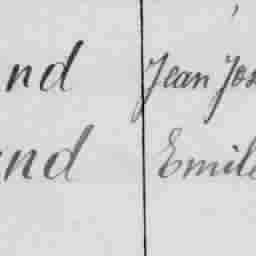 nd Jean Jos
nd Emile